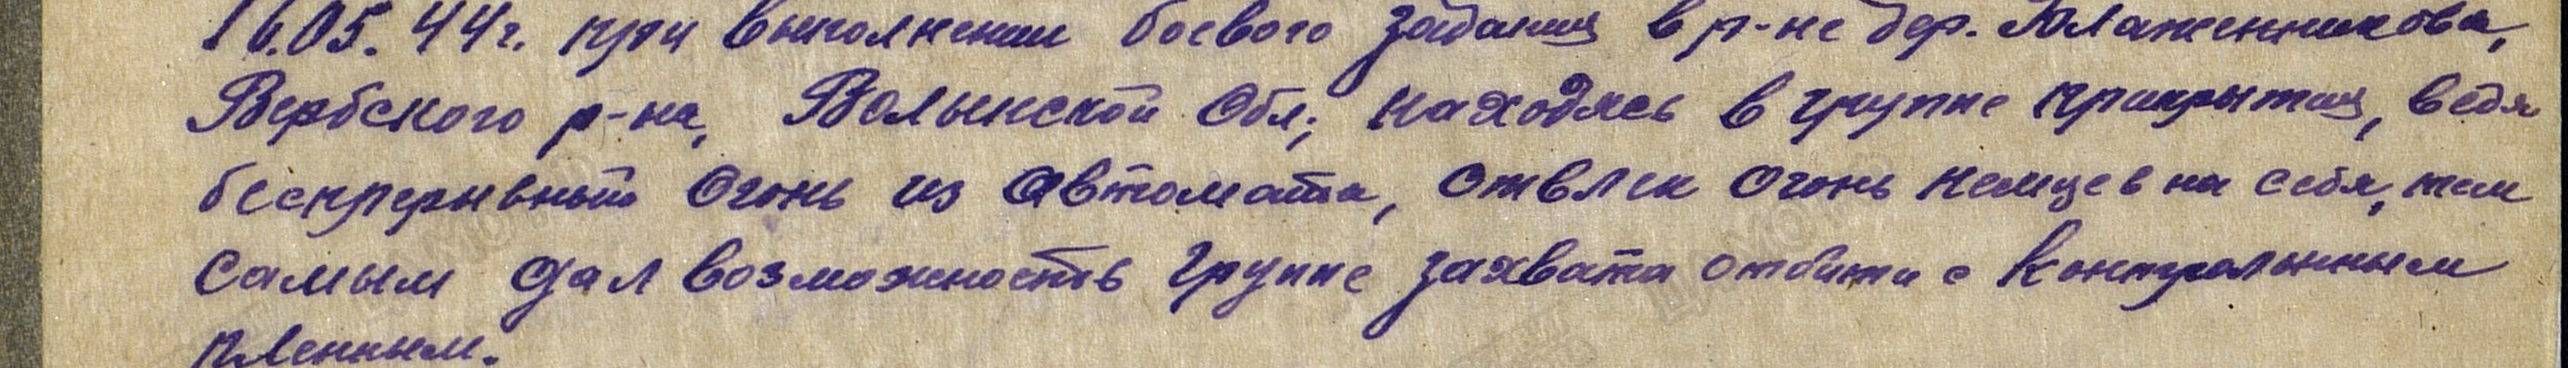 16.05.44г. при выполнении боевого задания в р-не дер.
Вербского р-на, Волынской обл., находясь в группе прикрытия, ведя
беспрерывный огонь из автомата, отвлек огонь немцев на себя, тем
самым дал возможность группе захвата отойти с контрольным
пленным.